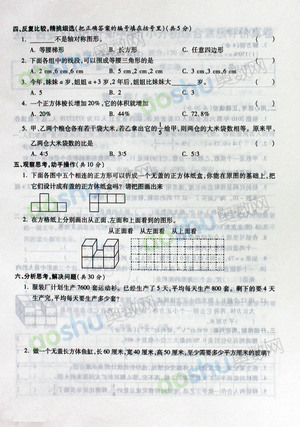 四、反复比较,精挑细选(把正确答案的编号填在括号里)(共5分)
1. ______不是轴对称图形。 ( )
A. 等腰梯形 B. 长方形 C. 任意四边形
2. 下面各组中的线段,可以围成等腰三角形的是 ( )
A. 2 cm,6 cm,2 cm B. 3 cm,3 cm,6 cm C. 5 cm,5 cm,6 cm
A. 4 B. C. 2
4. 一个正方体棱长增加20%,它的体积就增加 ( )
A. 20% B. 72.8% C. 44%
5. 甲、乙两个粮仓各有若干袋大米,若乙拿出它的 给甲,则两仓的大米袋数相等。原来甲、
乙两仓大米袋数的比是 ( )
A. 4:5 B. 3:5 C. 5:3
五、观察思考,动手操作(共10分)
1. 下面各图中五个相连的正方形可以拼成一个无盖的正方体纸盒,你能在原图的基础上,把
它们设计成有盖的正方体纸盒吗?请把图画出来
2. 在方格纸上分别画出从正面、左面和上面看到的图形。
从正面看 从左面看 从上面看
六、分析思考,解决问题(共30分)
1. 服装厂计划生产7600套运动衫。已经生产了5天,平均每天生产800套。剩下的要4天
生产完,平均每天生产多少套?
2. 做一个无盖长方体鱼缸,长60厘米,宽40厘米,高50厘米,至少需要多少平方厘米的玻璃?